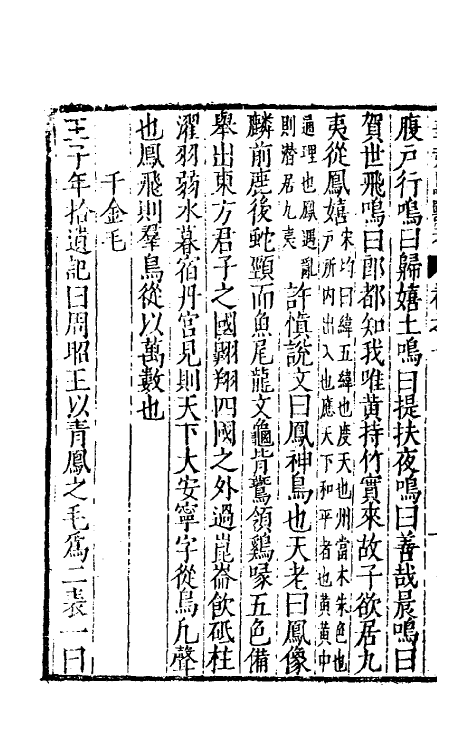 腹戸行鳴曰歸嬉土鳴曰提扶夜鳴曰善哉晨鳴曰
賀世飛鳴曰郎都知我唯黄持竹實來故子欲居九
夷從鳳嬉
宋均曰緯五緯也度天也州當木朱色也
戸所內出入也應天下和平者也黄黄中
通理也鳳遇亂
則潜居九夷
許慎說文曰鳳神鳥也天老曰鳳像
麟前鹿後蛇頸而魚尾龍文龜背鷰領鷄喙五色備
舉出東方君子之國翺翔四國之外過崑崙飲砥柱
濯羽弱水暮宿丹宫見則天下大安寧字從鳥凡聲
也鳳飛則羣鳥從以萬數也
千金毛
王子年拾遺記曰周昭王以青鳳之毛爲二裘一曰